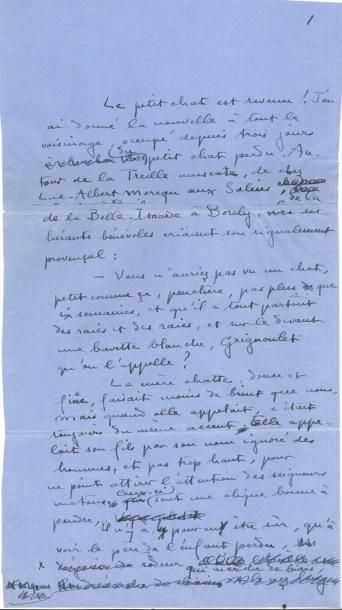 1
Le petit chat est revenu ! J'en
ai donné la nouvelle à tout le
voisinage, occupé depuis trois jours
du petit chat perdu. Au-
tour de la Treille muscate, de chez
Luc-Albert Moreau aux Salins,
de la
de la Belle-Isnarde à Borely, mes
hérauts bénévoles criaient son signalement
provençal :
— Vous n'auriez pas vu un chat,
petit comme ça, peuchère, pas plus que
six semaines, et qu'il a tout partout
des raies et des raies, et sur le devant
une bavette blanche, Grignoulet
qu'on l'appelle ?
La mère chatte, douce et
fine, faisait moins de bruit que nous,
mais quand elle appelait, c'était
toujours du même accent, elle appe-
lait son fils par son nom ignoré des
hommes, et pas trop haut, pour
ne point attirer l'attention des seigneurs
matous,
ceux-ci sont une clique bonne à
pendre,
il n'y a, pour en être sûr, qu'à
voir le père de l'enfant perdu,
rôdeur
qui marche de biais,